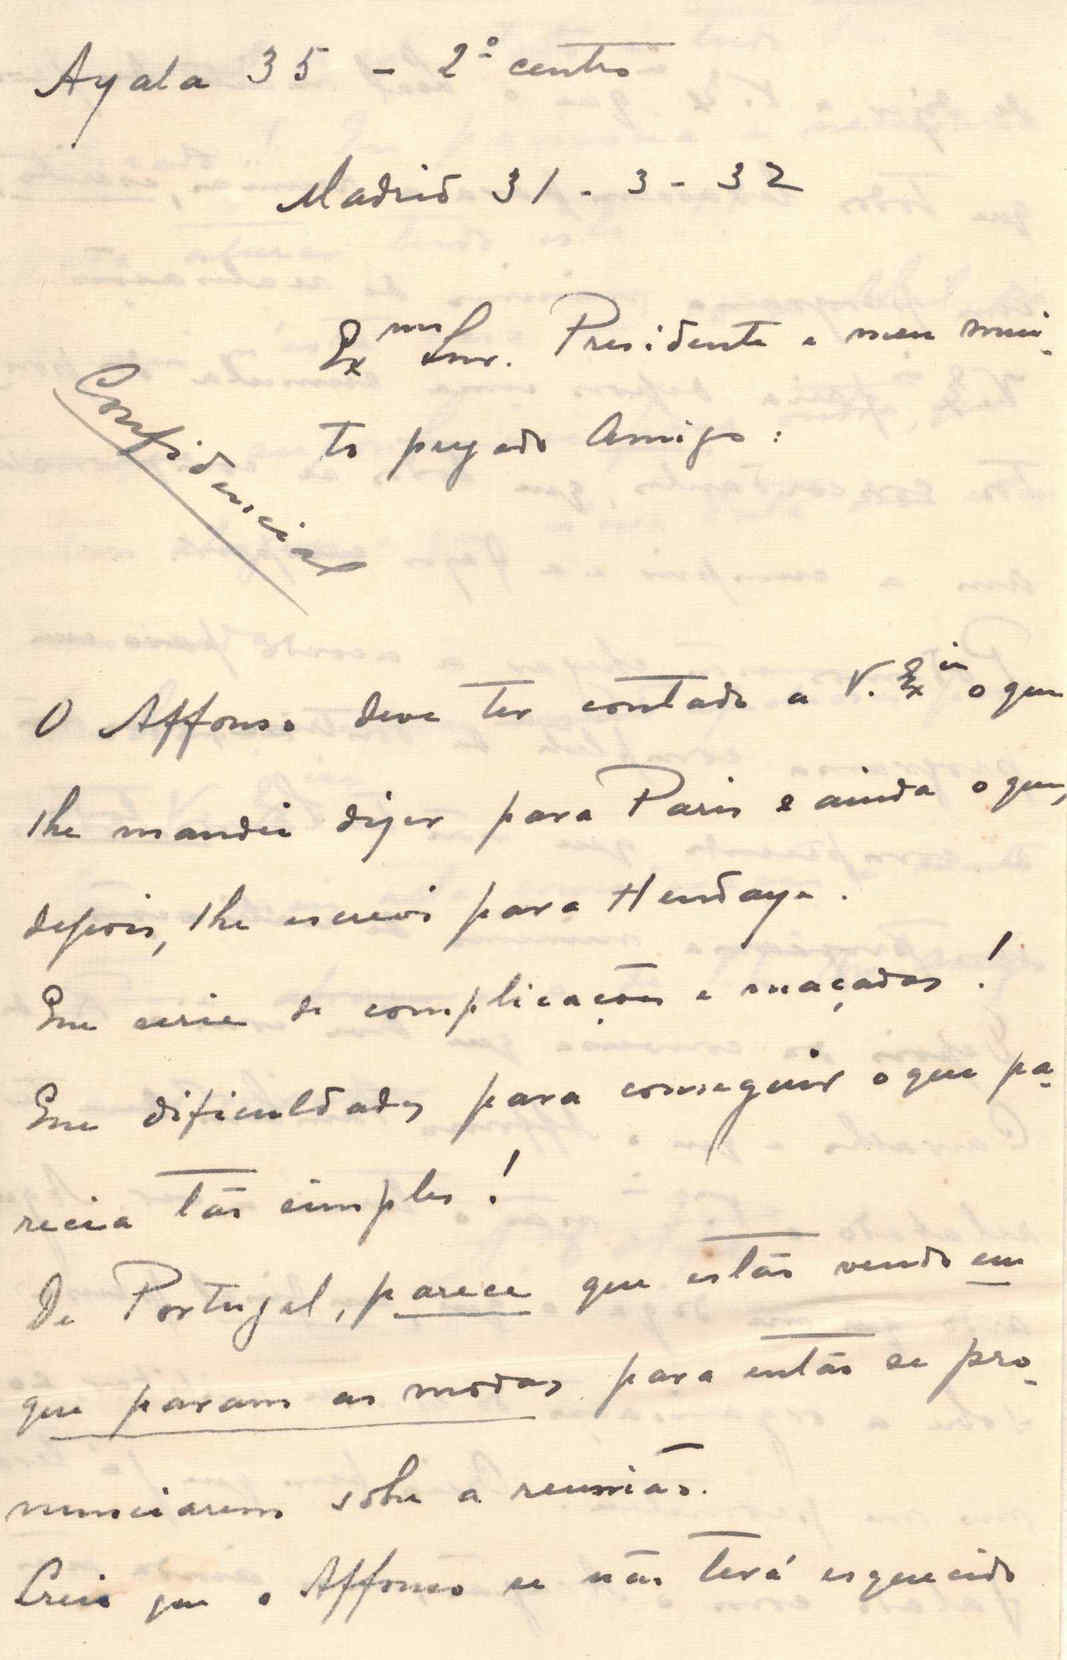 Ayala 35 - 2º centro
Madrid 31-3-32
Exmo Snr. Presidente e meu mui-
to prezado Amigo:
Confidencial
O Affonso deve ter contado a V. Exia o que
lhe mandei dizer para Paris e ainda o que,
depois, lhe escrevi para Hendaya.
Que serie de complicações e maçadas!
Que dificuldades para conseguir o que pa-
recia tão simples!
De Portugal, parece que estão vendo em
que param as modas para então se pro-
nunciarem sobre a reunião.
Creio que o Affonso se não terá esquecido